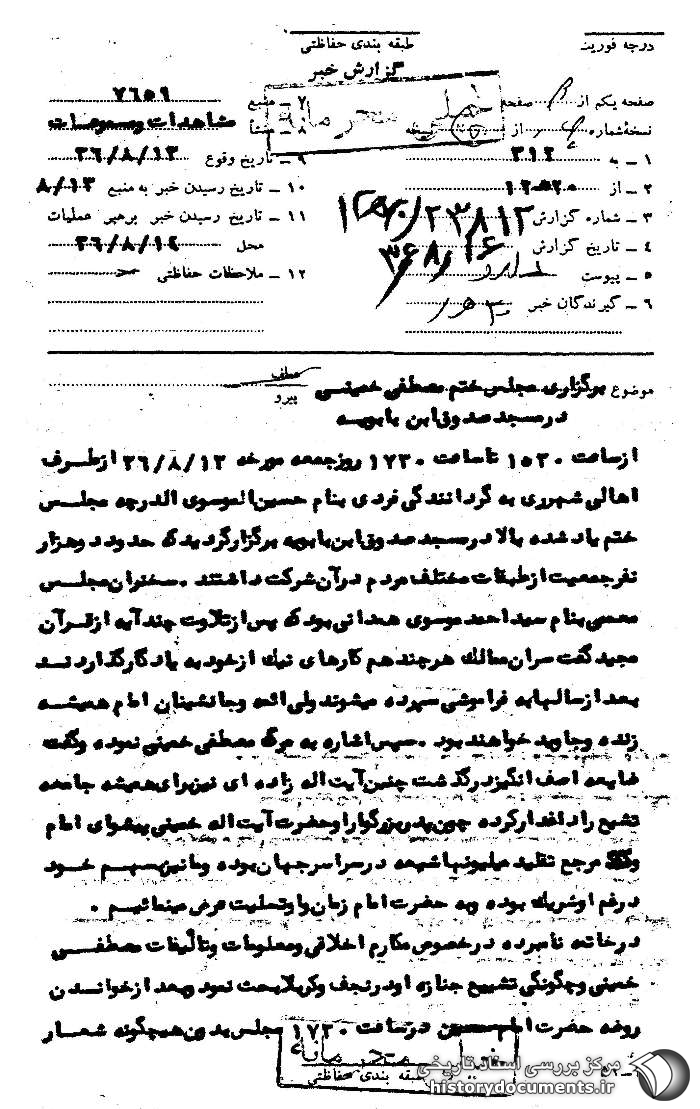 درجه فوریت
طبقه بندی حفاظتی
گزارش خبر
صفحه یکم از صفحه
نسخهٔ شماره از نسخه
۱ ـ به ۳۱۲
۲ ـ از
۳ ـ شماره گزارش
۴ ـ تاریخ گزارش
۵ ـ پیوست
۶ ـ گیرندگان خبر
۷ ـ منبع ۷۶۵۹
۸ ـ منشأ مشاهدات ومسموعات
۹ ـ تاریخ وقوع ۳۶/۸/۱۳
۱۰ ـ تاریخ رسیدن خبر به منبع ۸/۱۳
۱۱ ـ تاریخ رسیدن خبر برهبر عملیات
محل ۳۶/۸/۱۴
۱۲ ـ ملاحظات حفاظتی
موضوع برگزاری مجلس ختم مصطفی خمینی
در مسجد صدوق ابن بابویه
عطف
پیرو
از ساعت ۱۵۳۰ تا ساعت ۱۷۳۰ روز جمعه مورخه ۳۶/۸/۱۳ از طرف
اهالی شهرری به گردانندگی فردی بنام حسین الموسوی الدرچه مجلس
ختم یاد شده بالا در مسجد صدوق ابن بابویه برگزار گردید که حدود دوهزار
نفر جمعیت از طبقات مختلف مردم در آن شرکت داشتند . سخنران مجلس
معممی بنام سید احمد موسوی همدانی بود که پس از تلاوت چند آیه از قرآن
مجید گفت سران ممالک هر چند هم کارهای نیک از خود به یادگار گذارد ند
بعد از سالها به فراموشی سپرده میشوند ولی ائمه وجانشینان امام همیشه
زنده وجاوید خواهند بود . سپس اشاره به مرگ مصطفی خمینی نموده وگفت
ضایعه اسف انگیز درگذشت چنین آیت اله زاده ای نیز برای همیشه جامعه
تشیع را داغدار کرده چون پدر بزرگوار او حضرت آیت اله خمینی پیشوای امام
مرجع تقلید میلیونها شیعه در سراسر جهان بوده وما نیز بسهم خود
در غم او شریک بوده وبه حضرت امام زمان وا وتسلیت عرض مینمائیم .
در خاتمه نامبرده در خصوص مکارم اخلاقی ومعلومات وتالیفات مصطفی
خمینی وچگونگی تشییع جنازه او در نجف وکربلا بحث نمود وبعد از خواندن
روضه حضرت امام حسین در ساعت ۱۷۳۰ مجلس بدون هیچگونه شعار
طبقه بندی حفاظتی
مرکز بررسی اسناد تاریخی
historydocuments.ir